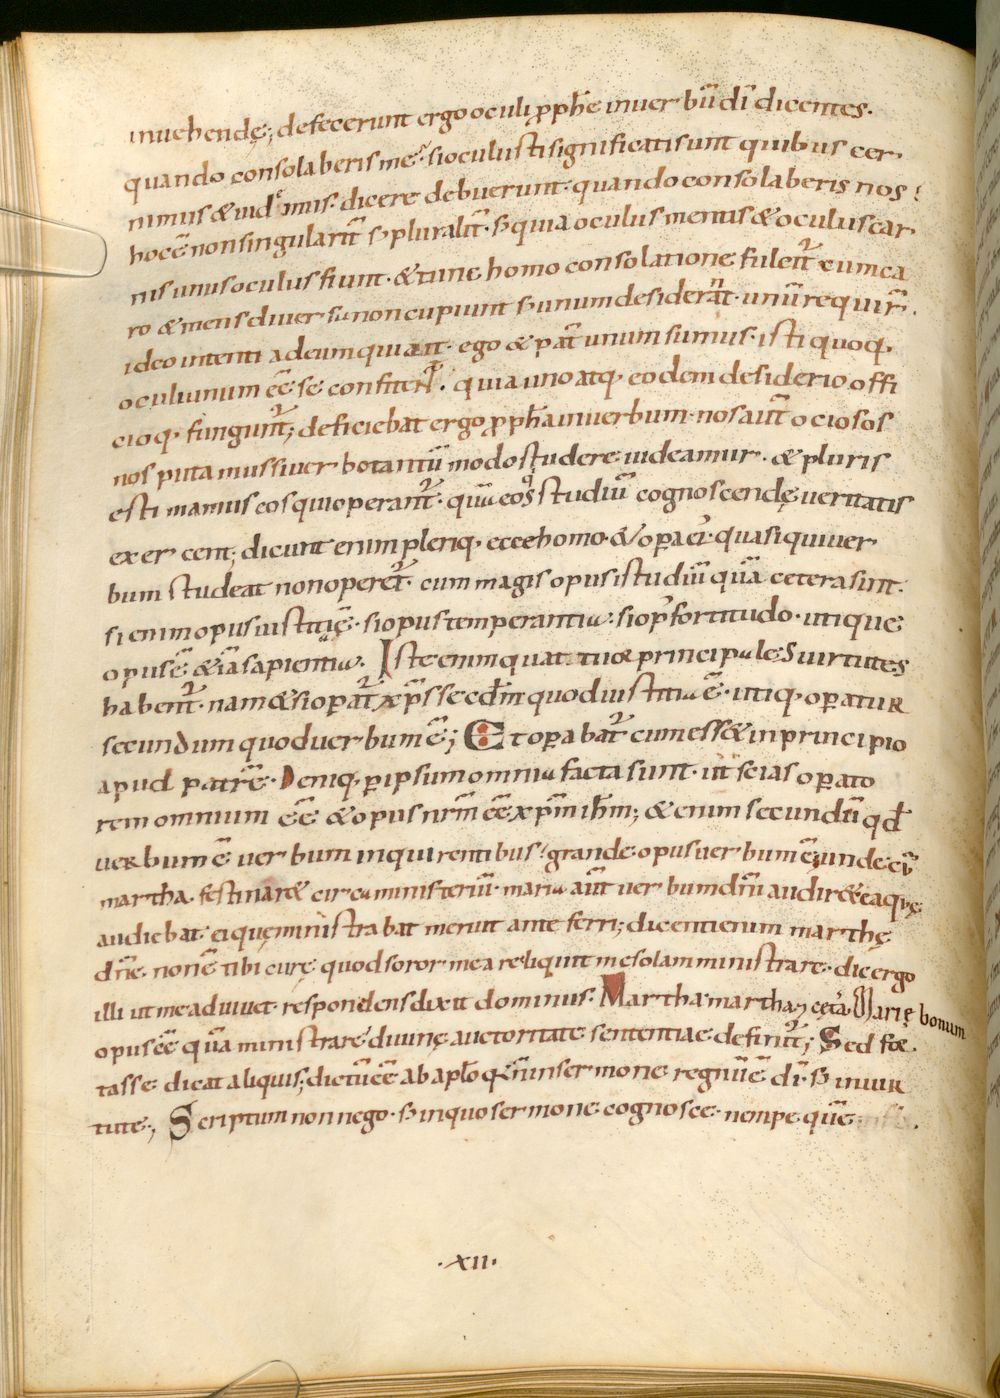 inuehendę; defecerunt ergo oculi ꝓph̄e inuerbū dī dicentes.
quando consolaberis me? si oculus ti significati sunt quibus cer
nimus & uidemus. dicere debuerunt. quando consolaberis nos?
hoc ē non singularit̄ s; pluralit̄. s; quia oculus mentis & oculus car
nis unus oculus fiunt. & tunc homo consolatione fulcit̄ cum ca
ro & mens diuersa non cupiunt s; unum desiderant. unū requir̄.
ideo intenti ad eum qui ait. ego & pat̄ unum sumus. isti quoq.
oculi unum ēē se confitent̄. quia uno atq. eodem desiderio offi
cioq. fungunt̄; deficiebat ergo ꝓph̄a in uerbum. nos aut̄ ociosos
nos putamus si uerbo tantū modo studere uideamur. & pluris
estimamus eos qui operant̄. quā eos qui studiū cognoscendę ueritatis
exercent; dicunt enim pleriq. ecce homo & oꝑa ei. quasi qui uer
bum studeat non operet̄. cum magis opus i studiū quā cetera sint.
si enim opus iustitię. si opus temperantia. si op̄ fortitudo. utique
opus ē & iā sapientia. Iste enim quattuor principales uirtutes
habent̄. nam & si oꝑat̄ xp̄s secd̄m quod iustitia ē. utiq. oꝑatur
secundum quod uerbum ē; Et oꝑabat̄ cum ess& in principio
apud patrē. Deniq. ꝑ ipsum omnia facta sunt. ut scias oꝑato
rem omnium ēē & opus nr̄m ēē xp̄m ih̄m; & enim secundū qd̄
uerbum ē uerbum inquirentibus. grande opus uerbum ē; unde cū
martha festinar& circa ministeriū. maria aut̄ uerbum dn̄i audir& ea quę
audiebat. ei quę ministrabat meruit ante ferri; dicenti enim marthę
dn̄e. non ē tibi curę quod soror mea reliquit me solam ministrare. dic ergo
illi ut me adiuuet. respondens dixit dominus. Martha martha, & cet̄a. Marię bonum
opus ēē quā ministrare diuinę auctoritate sententiae definit̄; Sed for
tasse dicat aliquis; dictū ēē ab apl̄o q̄ n̄ in sermone regnū ē dī. s; in uir
tute; Scriptum non nego. s; in quo sermone cognosce. nempe quē
.xii.